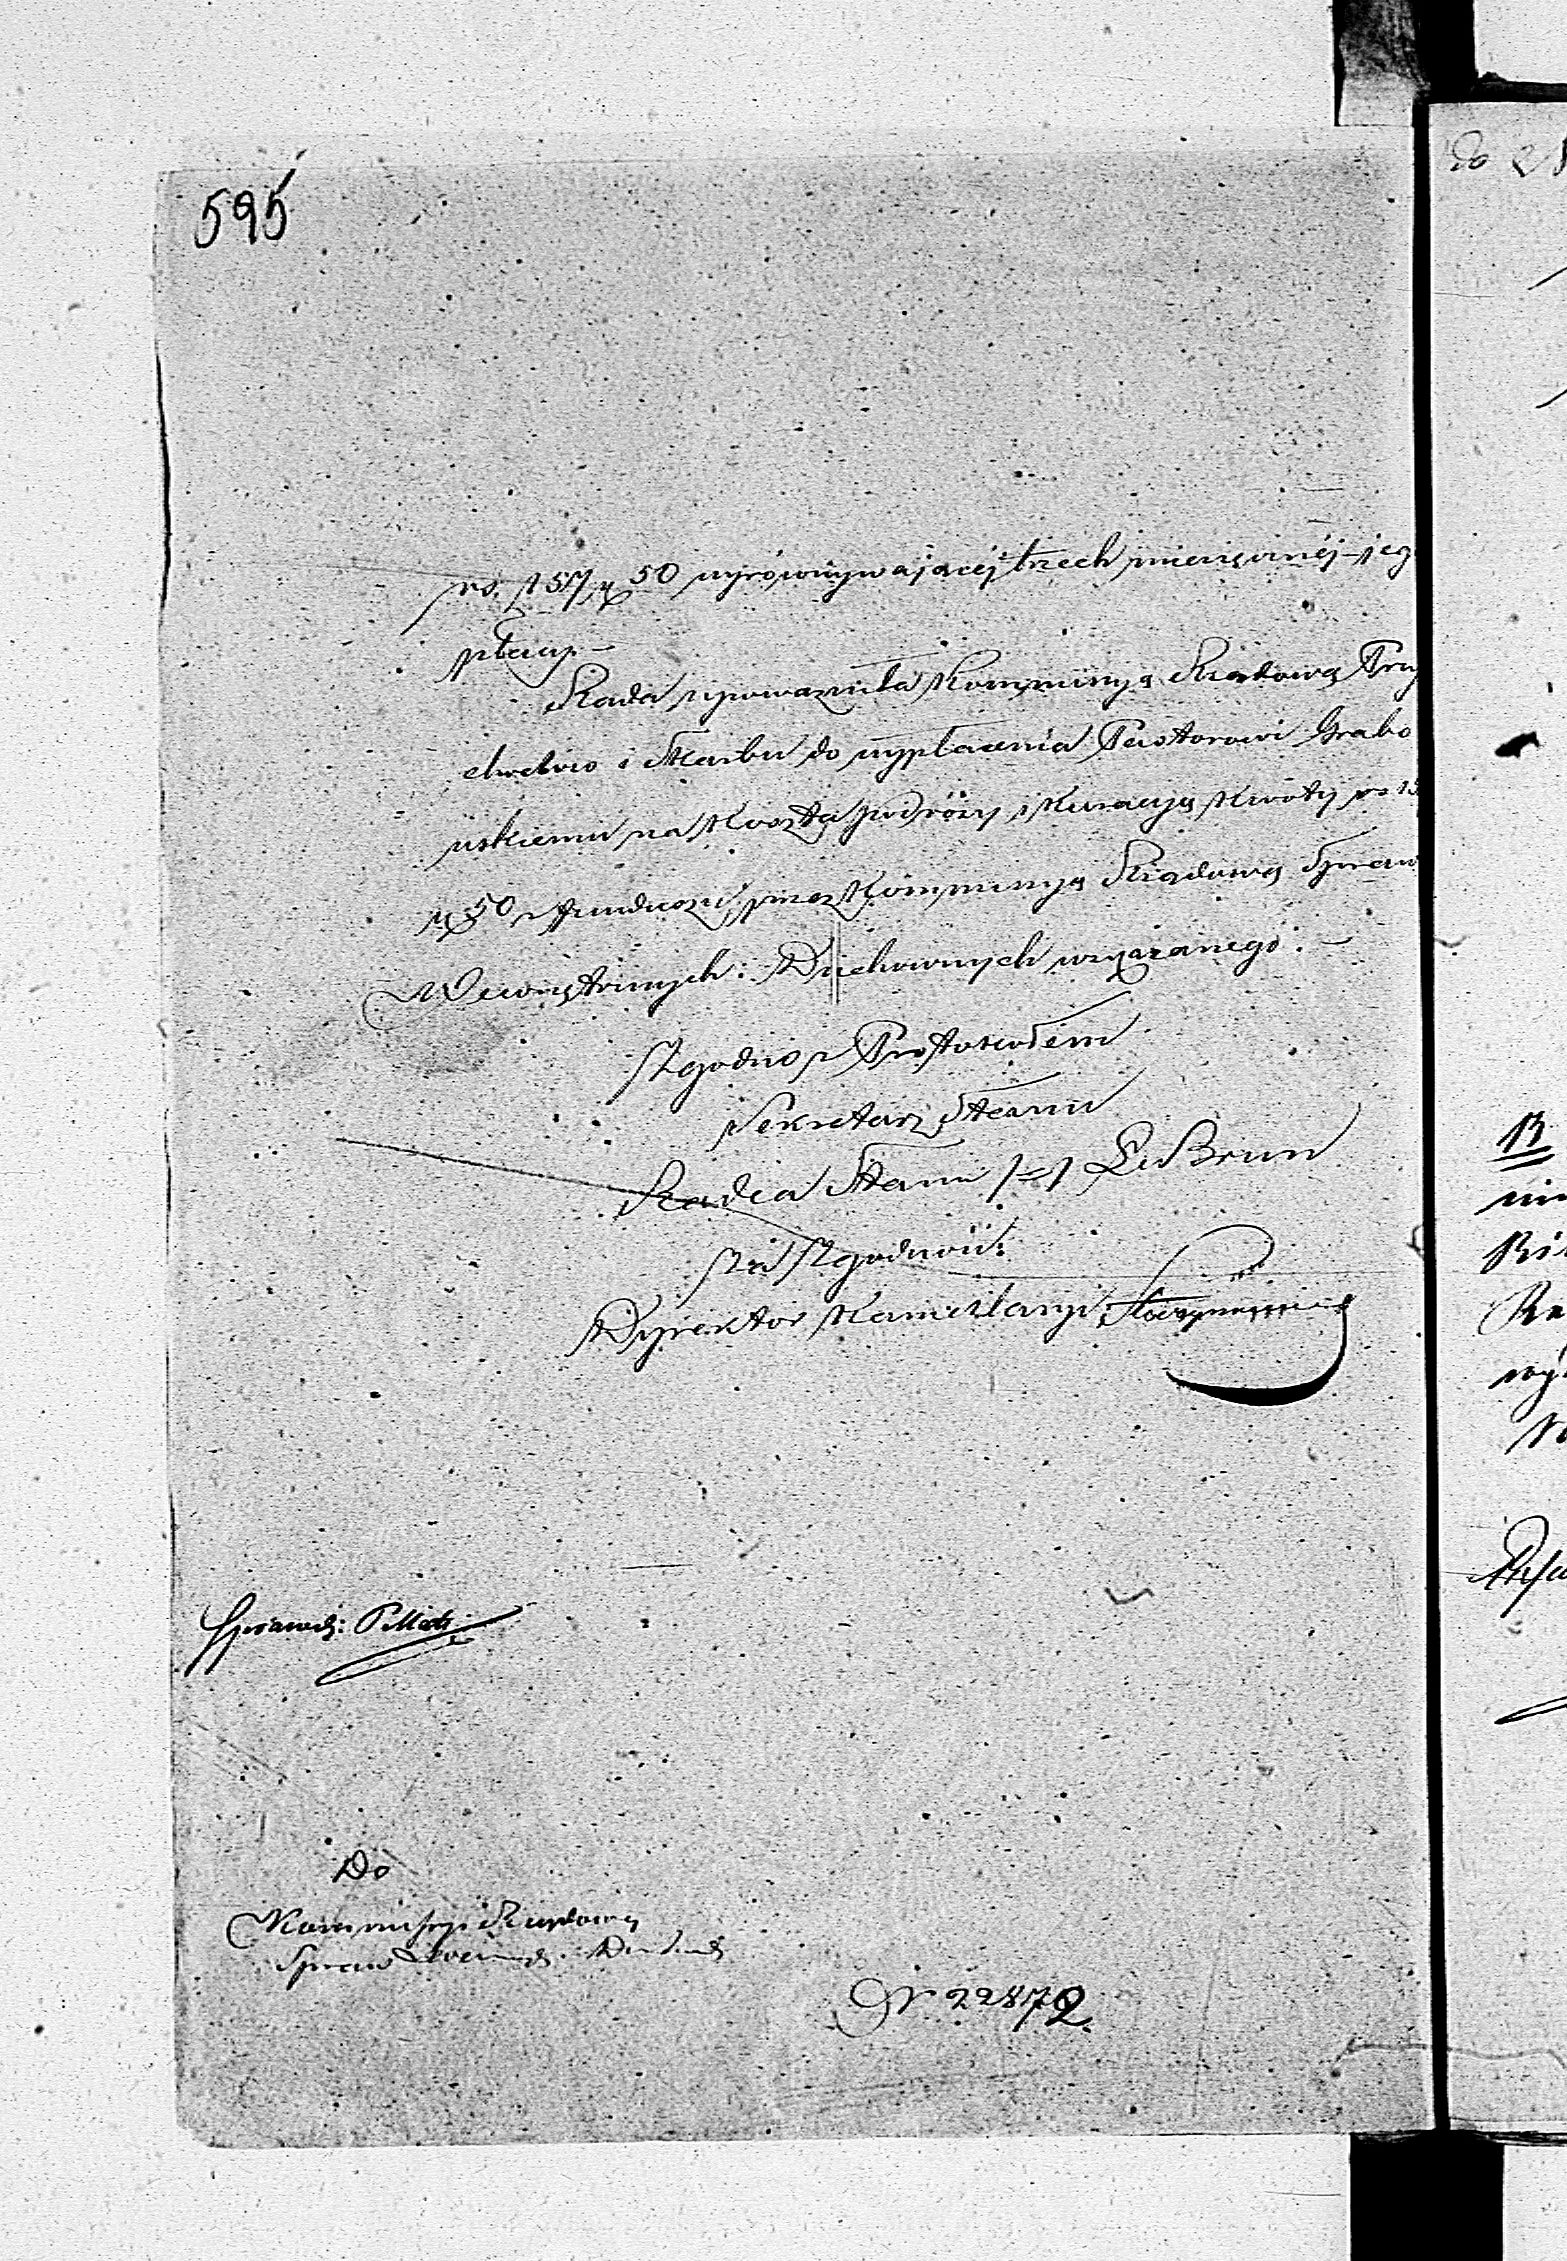 595
rs. 157 k 50 wyrównywającej trzech miesięcznéj jeg
płacy.—
Rada upoważniła Kommissyą Rządową Przy
chodów i Skarbu do wypłacenia Pastorowi Grabo
wskiemu na koszta podróży i kuracyą kwoty rs 15
k 50 z funduszu przez Kommissyą Rządową Spraw
Wewnętrznych i Duchownych wskazanego.—
Zgodno z Protokołem
Sekretarz Stanu
Radca Stanu /—/ LeBrun
Za Zgodność:
Dyrektor Kancellaryi
Sprawdz:
Do
Kommissyi Rządowéj
Spraw Wewnęt. Duch
N 22872.
Do 2